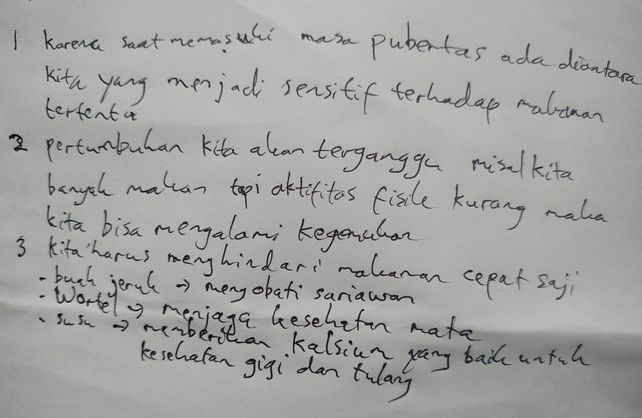 1 karena saat memasuki masa pubertas ada diantara
kita yang menjadi sensitif terhadap makanan
tertentu
2 pertumbuhan kita akan terganggu misal kita
banyak makan tapi aktifitas fisik kurang maka
kita bisa mengalami kegemukan
3 kita harus menghindari makanan cepat saji
- buah jeruk → mengobati sariawan
- Wortel → menjaga kesehatan mata
- susu → memberikan kalsium yang baik untuk
kesehatan gigi dan tulang